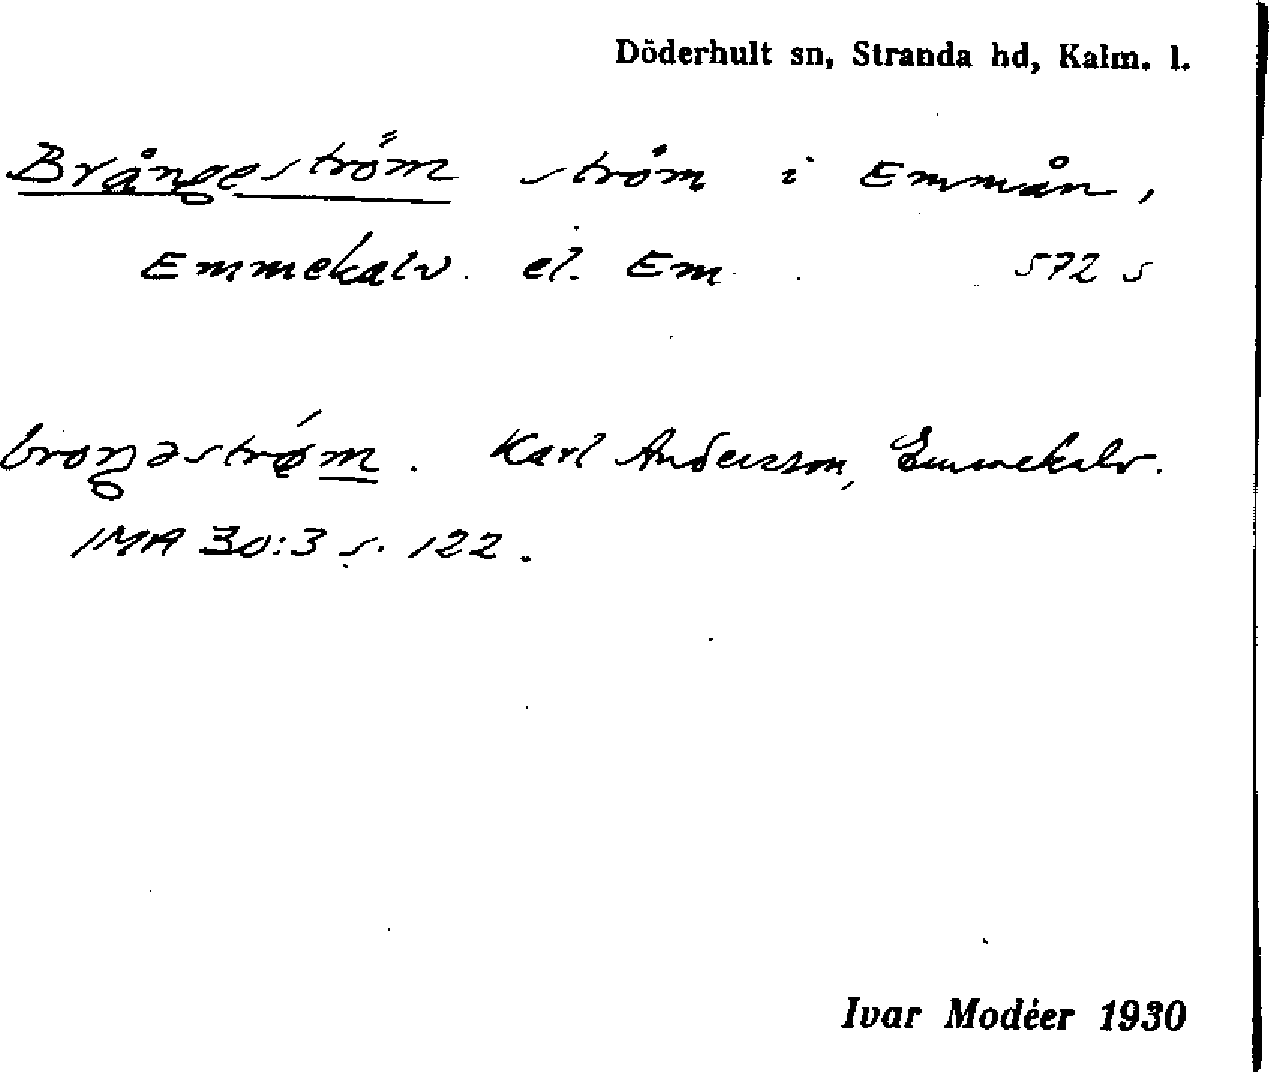 Döderhult sn, Stranda hd, Kalm. l.
Brångeström ström i Emmån,
Emmekalv. el. Em 572 s
broŋəstrøm. Karl Andersson, Emmekalv.
IMA 30:3 s. 122.
Ivar Modéer 1930